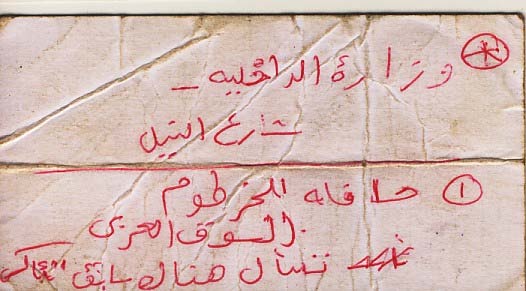 وزارة الداخليه –
شارع النيل
① حافله الخرطوم
السوق العربى
تسأل هنالك سابق